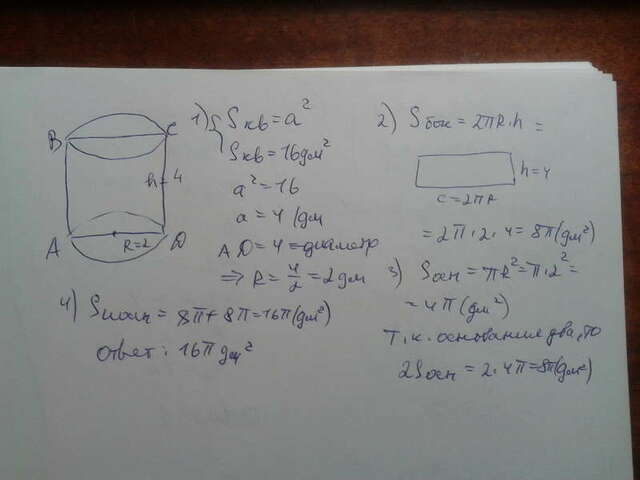 B
C
h = 4
A
R=2
D
1) { Sкв = a²
Sкв = 16 дм²
a² = 16
a = 4 дм
AD = 4 = диаметр
⇒ R = 4/2 = 2 дм
2) Sбок = 2πR·h =
h = 4
c = 2πR
= 2π·2·4 = 8π (дм²)
3) Sосн = πR² = π·2² =
= 4π (дм²)
Т.к. основания два, то
2Sосн = 2·4π = 8π (дм²)
4) Sполн = 8π + 8π = 16π (дм²)
ответ: 16π дм²